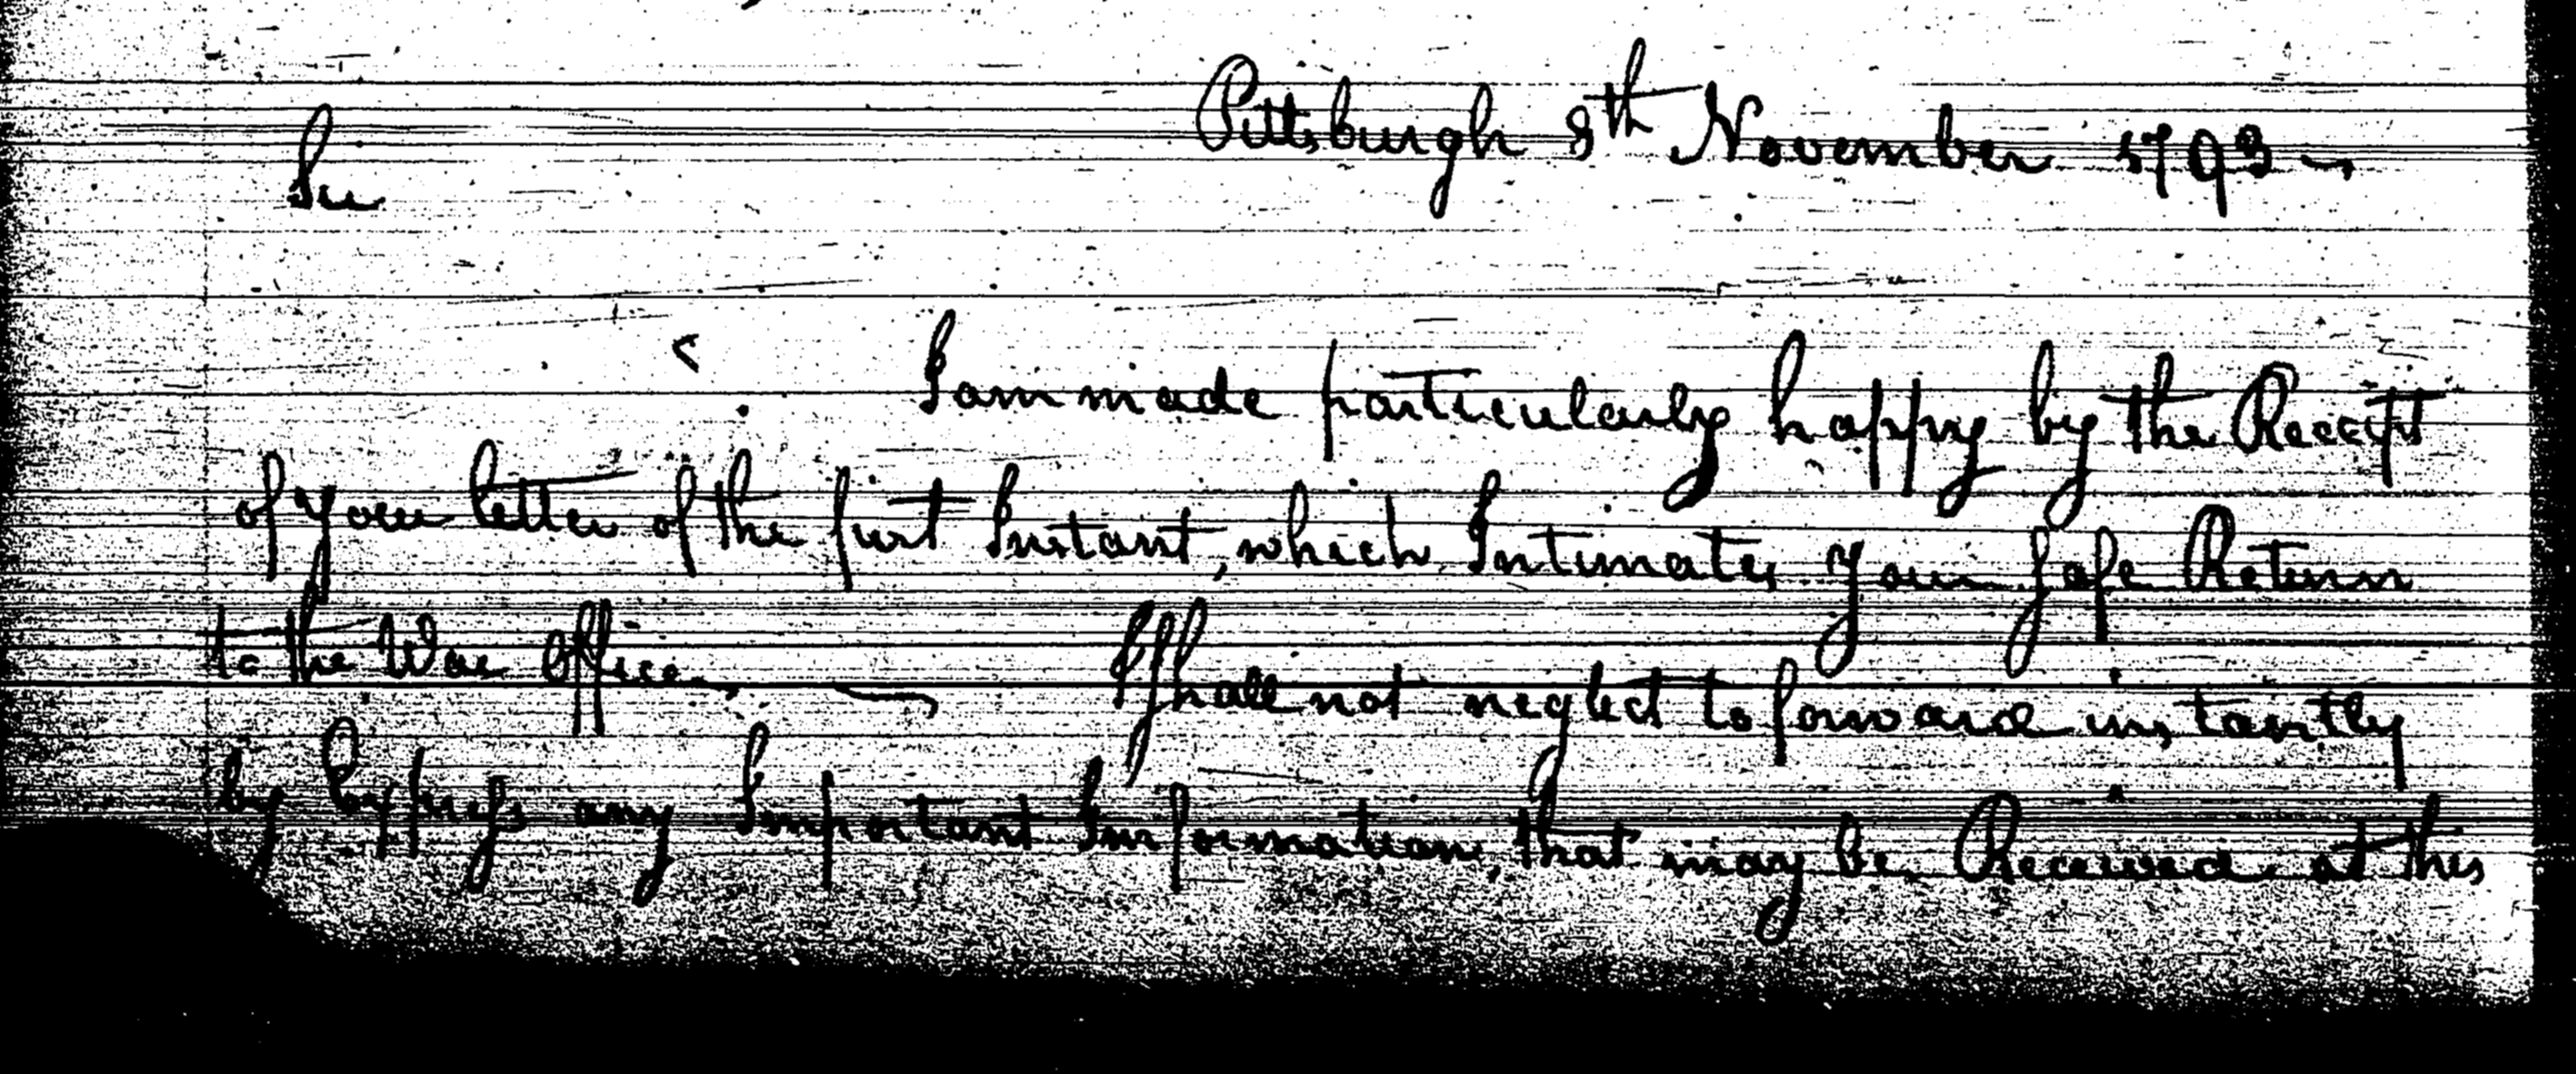 Pittsburgh 8th November 1793
Sir
I am made particularly happy by the Receipt
of your letter of the first Instant, which Intimates your safe Return
to the War Office. I shall not neglect to forward instantly
by Express any Important Information, that may be Received at this